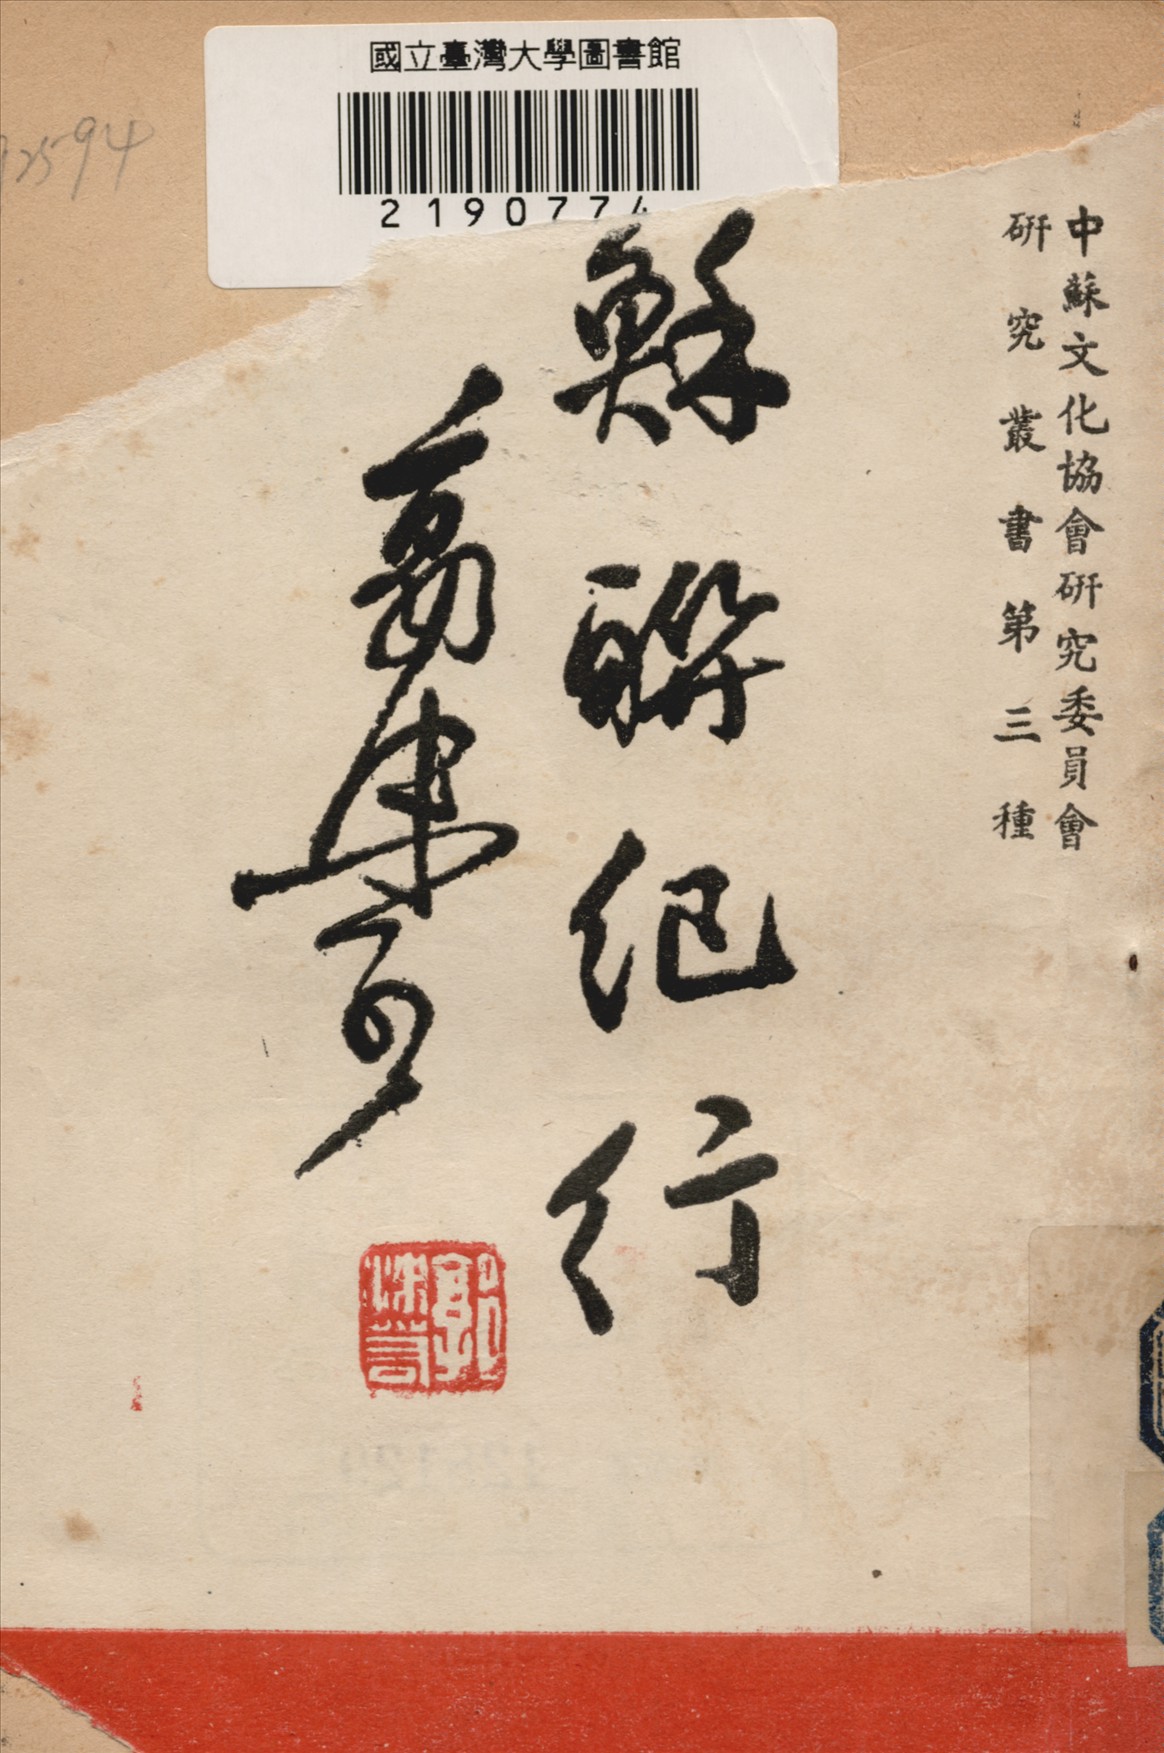 國立臺灣大學圖書館
2190774
中蘇文化協會研究委員會
研究叢書第三種
蘇聯紀行
郭沫若
郭沫若